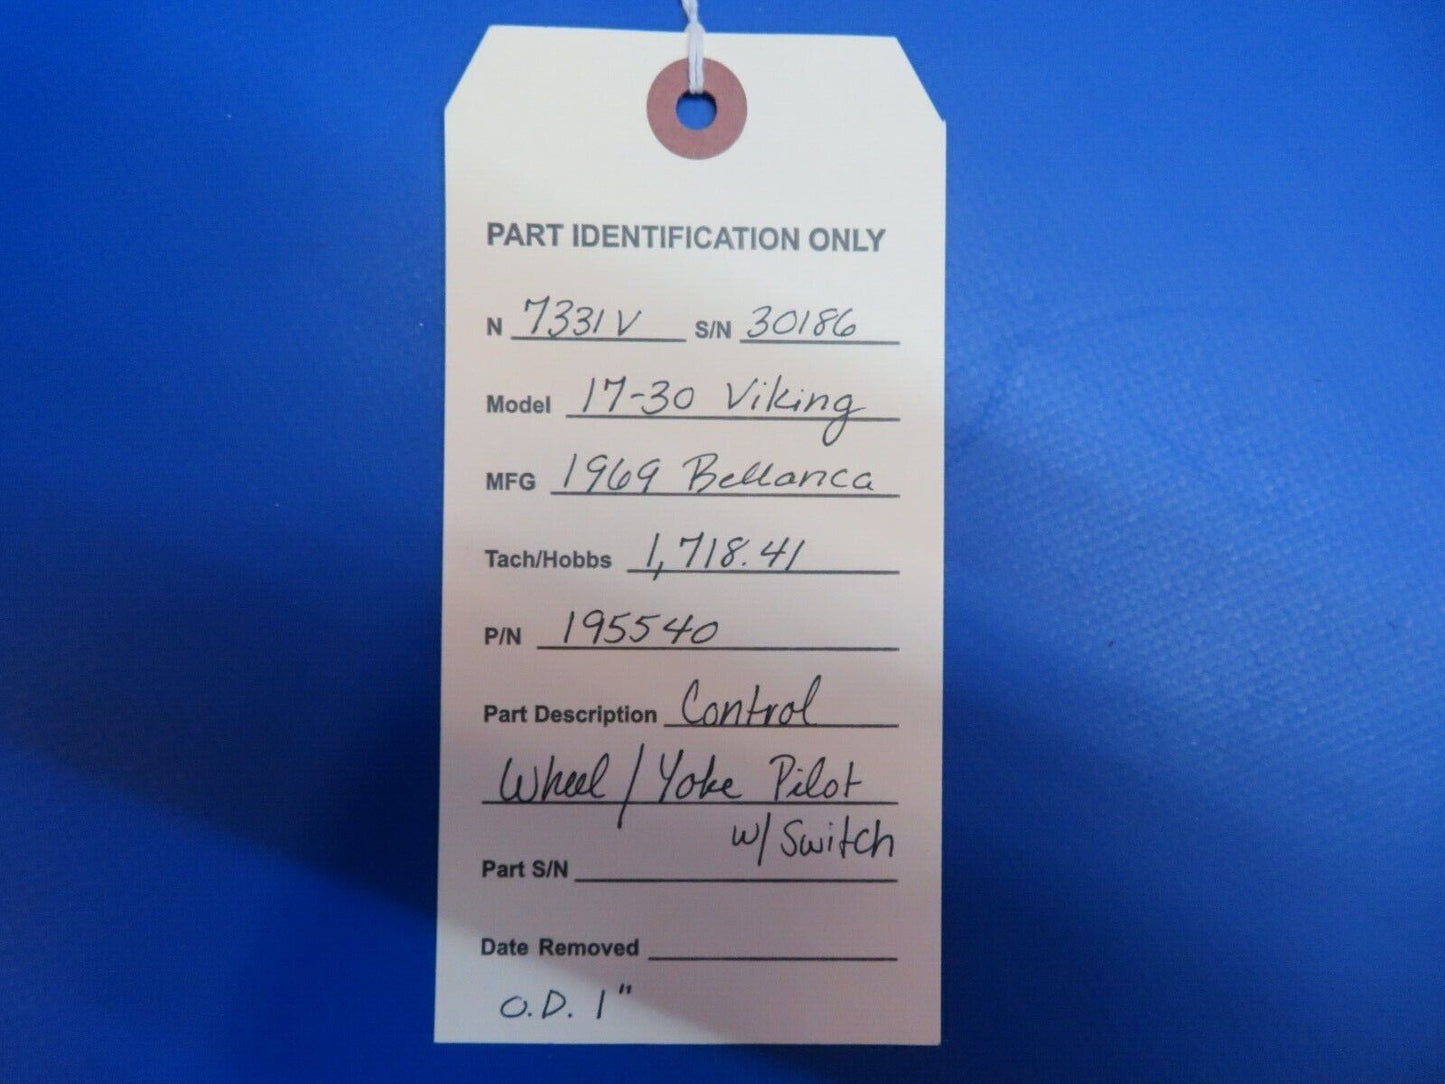 PART IDENTIFICATION ONLY
N 7331V S/N 30186
Model 17-30 Viking
MFG 1969 Bellanca
Tach/Hobbs 1,718.41
P/N 195540
Part Description Control
Wheel / Yoke Pilot
w/ Switch
Part S/N
Date Removed
O.D. 1"